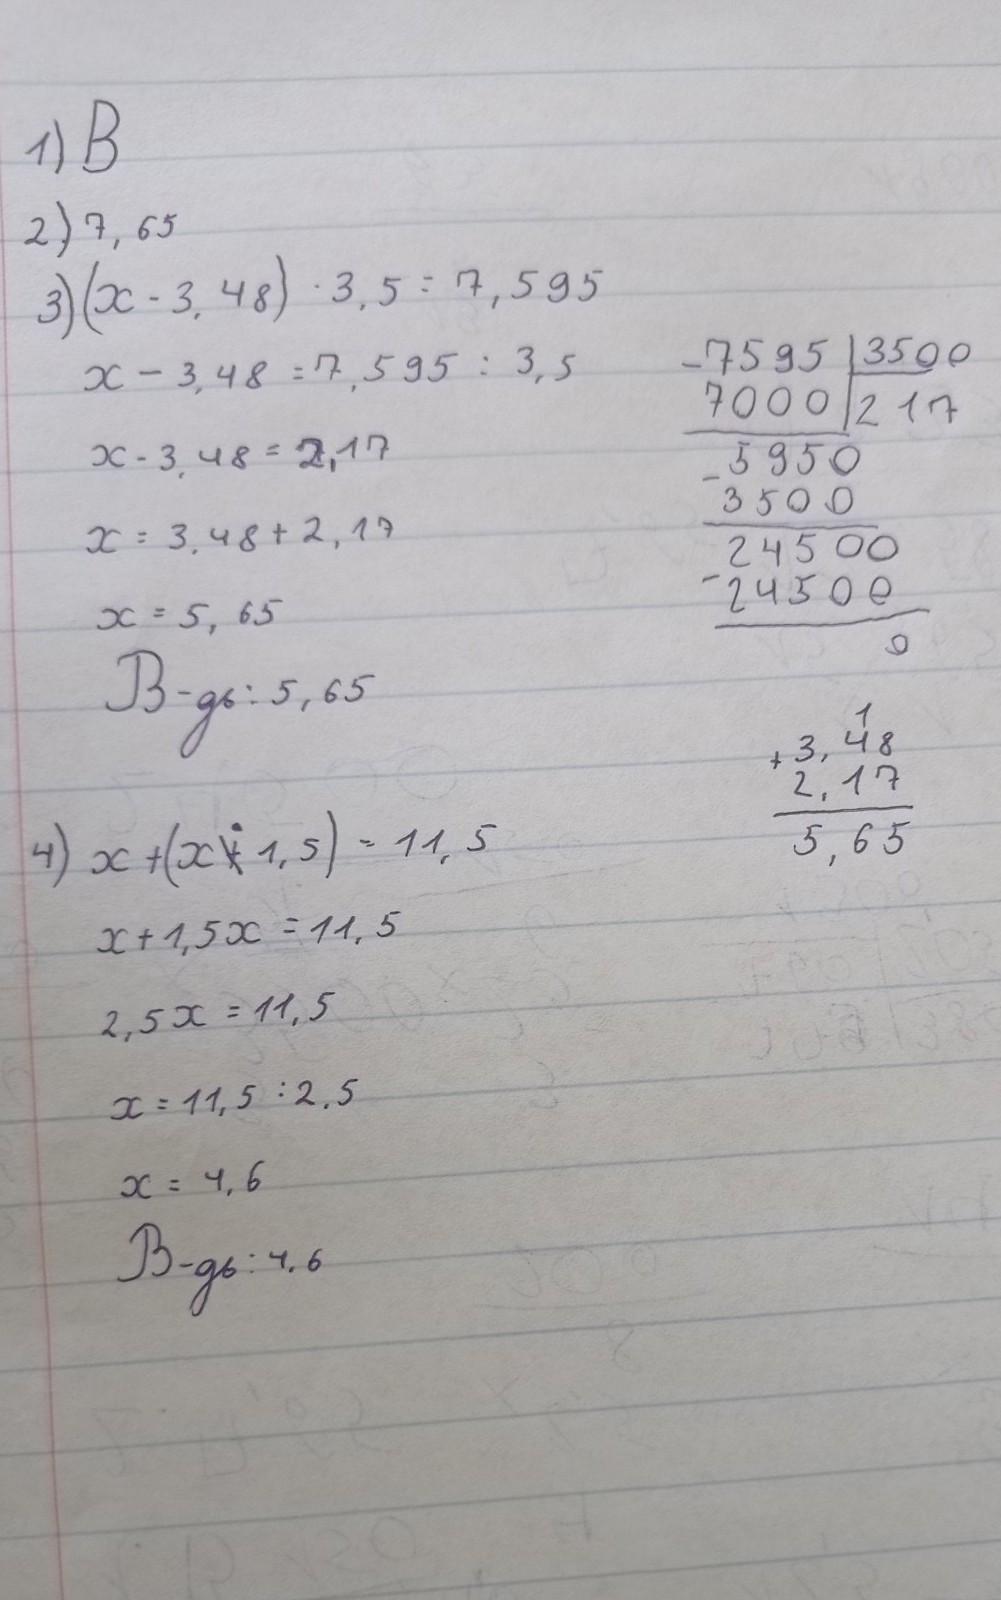 1) В
2) 7,65
3) (x - 3,48) · 3,5 = 7,595
x - 3,48 = 7,595 : 3,5
x - 3,48 = 2,17
x = 3,48 + 2,17
x = 5,65
В-дь: 5,65
- 7595 | 3500
7000 | 217
- 5950
3500
24500
- 24500
0
1
+ 3,48
2,17
5,65
4) x + (x · 1,5) = 11,5
x + 1,5x = 11,5
2,5x = 11,5
x = 11,5 : 2,5
x = 4,6
В-дь: 4,6